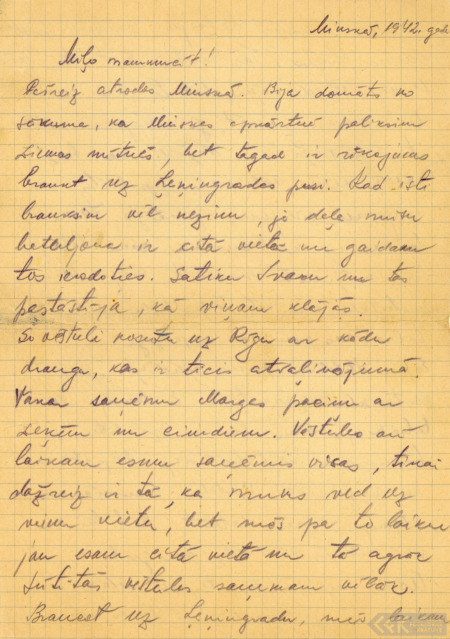 Minskā, 1942. gada
Miļo mammiņ!
Pašreiz atrodos Minskā. Bija domāts no
sākuma, ka Minskas apkārtnē paliksim
ziemas mītnēs, bet tagad ir rīkojums
braukt uz Ļeņingradas pusi. Kad īsti
brauksim vēl nezinu, jo daļa mūsu
bataljona ir citā vietā un gaidam
tos ierodoties. Satiku Ivaru un tas
pastāstīja, kā viņam klājās.
Šo vēstuli nosūtu uz Rīgu ar kādu
draugu, kas ir ticis atvaļinājumā.
Vakar saņēmu Margas paciņu ar
zeķēm un cimdiem. Vēstules arī
laikam esmu saņēmis visas, tikai
dažreiz ir tā, ka mums ved uz
vienu vietu, bet mēs pa to laiku
jau esam citā vietā un tā agrāk
sūtītās vēstules saņemam vēlāk.
Braucot uz Ļeņingradu, mēs laikam